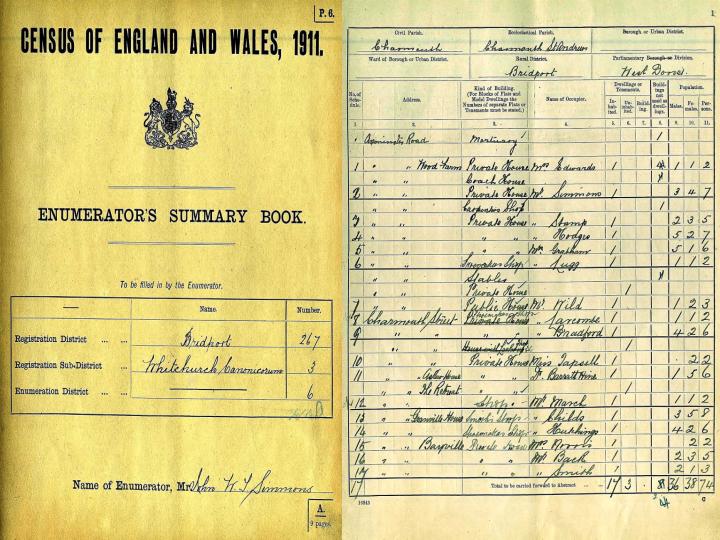 P. 6.
CENSUS OF ENGLAND AND WALES, 1911.
ENUMERATOR'S SUMMARY BOOK.
To be filled in by the Enumerator.
Name. Number.
Registration District ... ... Bridport 267
Registration Sub-District ... Whitchurch Canonicorum 3
Enumeration District ... ... 6
Name of Enumerator, Mr. John W T Simmons
A.
9 pages.
1
Civil Parish. Ecclesiastical Parish. Borough or Urban District.
Charmouth Charmouth St Andrew
Ward of Borough or Urban District. Rural District. Parliamentary Borough or Division.
Bridport West Dorset
No. of Schedule. Address. Kind of Building. (For Blocks of Flats and Model Dwellings the Numbers of separate Flats or Tenements must be stated.) Name of Occupier. Dwellings or Tenements. Inhabited. Uninhabited. Building. Buildings not used as dwellings. Population. Males. Females. Persons.
1. 2. 3. 4. 5. 6. 7. 8. 9. 10. 11.
Axminster Road Mortuary 1
1 " " Wood Farm Private House Mrs Edwards 1 1 1 2
" " Coach House
2 " " Private House Mr Simmons 1 3 4 7
" " Carpenters Shop 1
3 " " Private House " Stamp 1 2 3 5
4 " " " " " Hodges 1 5 2 7
5 " " " " Mrs 1 5 1 6
6 " " Shop " 1 1 1 2
" " Stables
" " Private House 1
7 " " Public House Mr Wild 1 1 2 3
8 Charmouth Street Private House " 1 1 1 2
9 " " " Bradford 1 4 2 6
" "
10 " " Private House Miss Tapsell 1 2 2
11 " " " " Dr 1 1 5 6
" " The Retreat " " 1
12 " " Shop Mr March 1 1 1 2
13 " " Granville House Shop " Childs 1 3 5 8
14 " " Shoemakers Shop " Hutchings 1 4 2 6
15 " " Bayville Private House Mrs Norris 1 2 2
16 " " " " Mr Back 1 2 3 5
17 " " " " " Smith 1 2 1 3
17 Total to be carried forward to Abstract ... 17 3 . 36 38 74